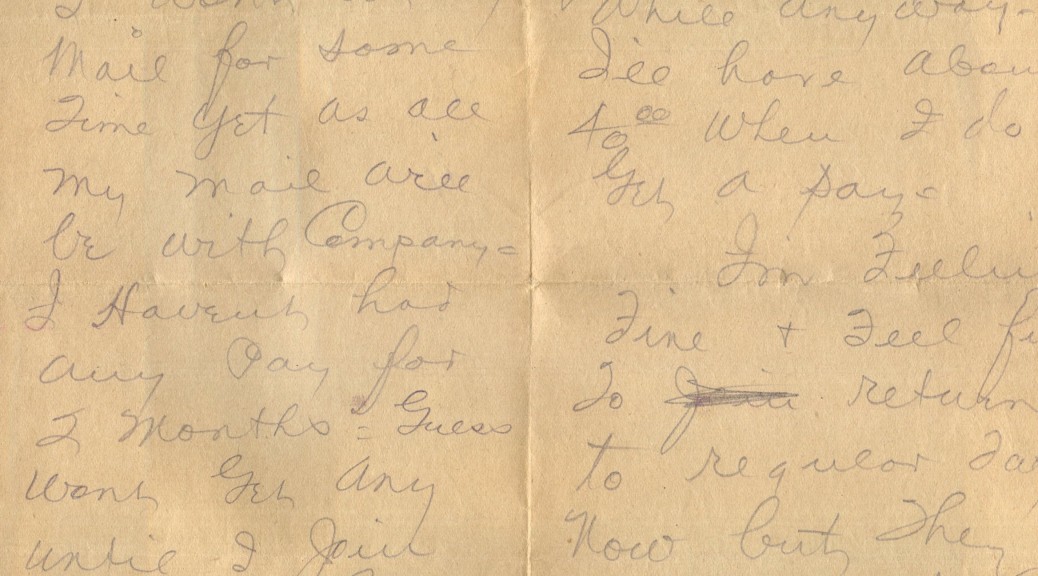 I wont
Mail for some
Time yet as all
my mail will
be with Company=
I Havent had
any Pay for
2 Months = Guess
wont Get any
until I Join
while any way-
I'll have abou
40⁰⁰ when I do
Get a pay=
I'm Feelin
Fine + Feel fi
To Join return
to regular
Now but They